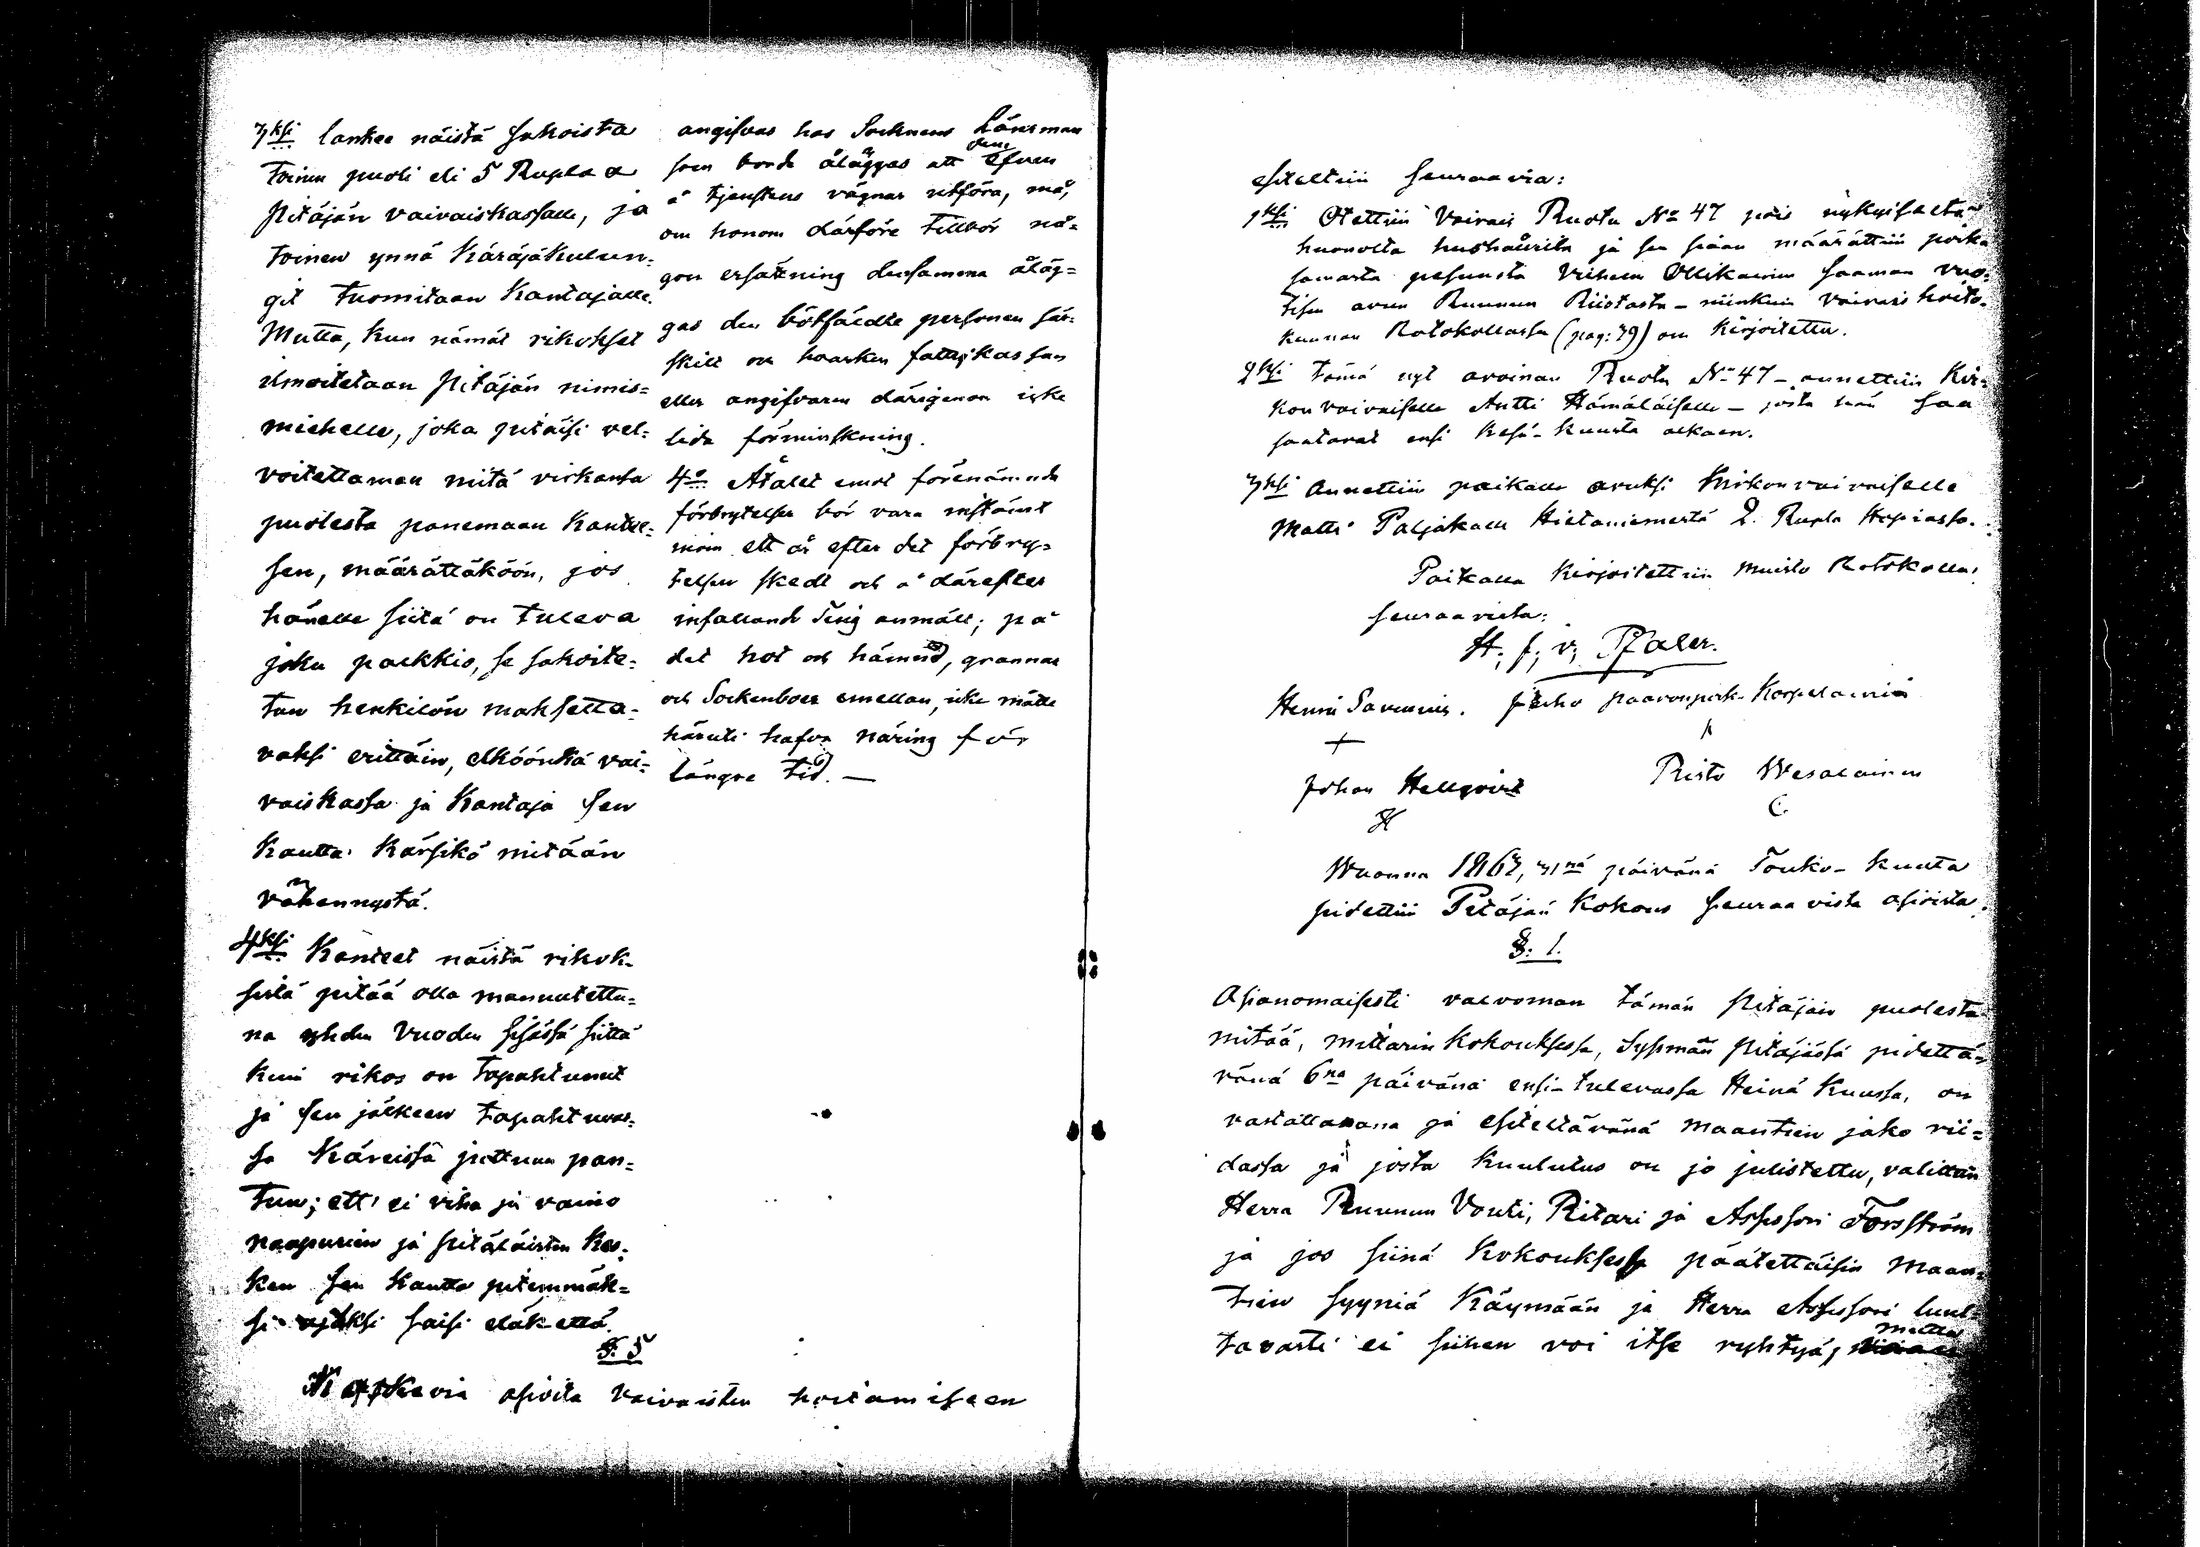 3ksi lankee näistä sakoista
toinen puoli eli 5 Rupla a
Pitäjän vaivaiskassalle, ja
toinen ynnä Käräjäkulun-
git tuomitaan Kantajalle.
Mutta, kun nämät rikokset
ilmoitetaan Pitäjän nimis=
miehelle, joka pitäisi vel=
voitettaman mitä virkansa
puolesta panemaan Kantee=
sen, määrättäköön, jos
hänelle siitä on tuleva
joku palkkio, se sakoite=
tun henkilön maksetta=
vaksi erittäin, elköönkä vai=
vaiskassa ja Kantaja sen
Kautta Kärsikö mitään
vähennystä.
4ksi Kanteet näistä rikok-
sista pitää olla mannutettu=
na yhden Vuoden sisässä siittä
kuin rikos on tapahtunut
ja sen jälkeen tapahtuvas=
sa Käreissä juttuun pan=
tun; ett' ei viha ja vaino
naapurien ja pitäläisten Kes=
ken sen Kautta pitemmäk=
si ajaksi saisi eläkettä.
§. 5
Koskevia asioita Vaivaisten hoitamiseen
angifvas hos Socknens Länsman
som borde åläggas att dem äfven
å tjenstens vägnar utföra, må,
om honom därföre tillkör nå=
gon ersättning densamma åläg=
gas den bötfäldte personen sär=
skilt och hvarken fattigkassan
eller angifvaren därigenom icke
lida förminskning.
4o Åtalet emot förenämnde
förbrytelser bör vara instämt
inom ett år efter det förbry=
telsen skedt och å därefter
infallande Ting anmält; på
det hot och hämnd, grannar
och Sockenboer emellan, icke måtte
häruti hafva näring för
längre tid. —
esiteltiin seuraavia:
1ksi Otettiin Vaivais Ruotu No 47 pois nykyiseltä
huonolta hushåurilta ja sen siaan määrättiin poika
samasta pesuusta Vilhem Ollikainen saaman vuo=
tisen avun Ruunun Riistasta – niinkuin vaivais hoito-
kunnan Rotokollassa (pag: 79) on Kirjoitettu.
2ksi Tämä nyt avoinan Ruotu No 47 – annettiin Kir=
kon vaivaiselle Antti Hämäläiselle – josta hän saa
saatavat ensi Kesä-Kuusta alkaen.
3ksi Annettiin paikalle avuksi Kirkonvaivaiselle
Matti Paljakalle Hietaniemestä 2. Rupla Hopiassa.
Paikalla Kirjoitettiin Muisto Rotokollas,
seuraavista:
H. f. v. Pfaler.
Henrii Savenius. Juho Paavonpoik. Korpelainin
Johan Hellqvist Risto Wesalainen
H C.
Wuonna 1863, 31nä päivänä Touko-Kuuta
pidettiin Pitäjän Kokous seuraavista asioista.
§. 1.
Asianomaisesti valvoman tämän Pitäjän puolesta
mitää, mittarin Kokouksessa, Sysmän Pitäjässä pidettä=
vänä 6na päivänä ensi-tulevassa Heinä Kuussa, on
vastattavana ja esiteltävänä maantien jako rii=
dassa ja josta Kuulutus on jo julistettu, valittiin
Herra Ruunun Vouti, Ritari ja Assessori Forsström
ja jos siinä Kokouksessa päätettäisiin maan=
tien syyniä Käymään ja Herra Assessori luul=
tavasti ei siihen voi itse ryhtyä, mutta